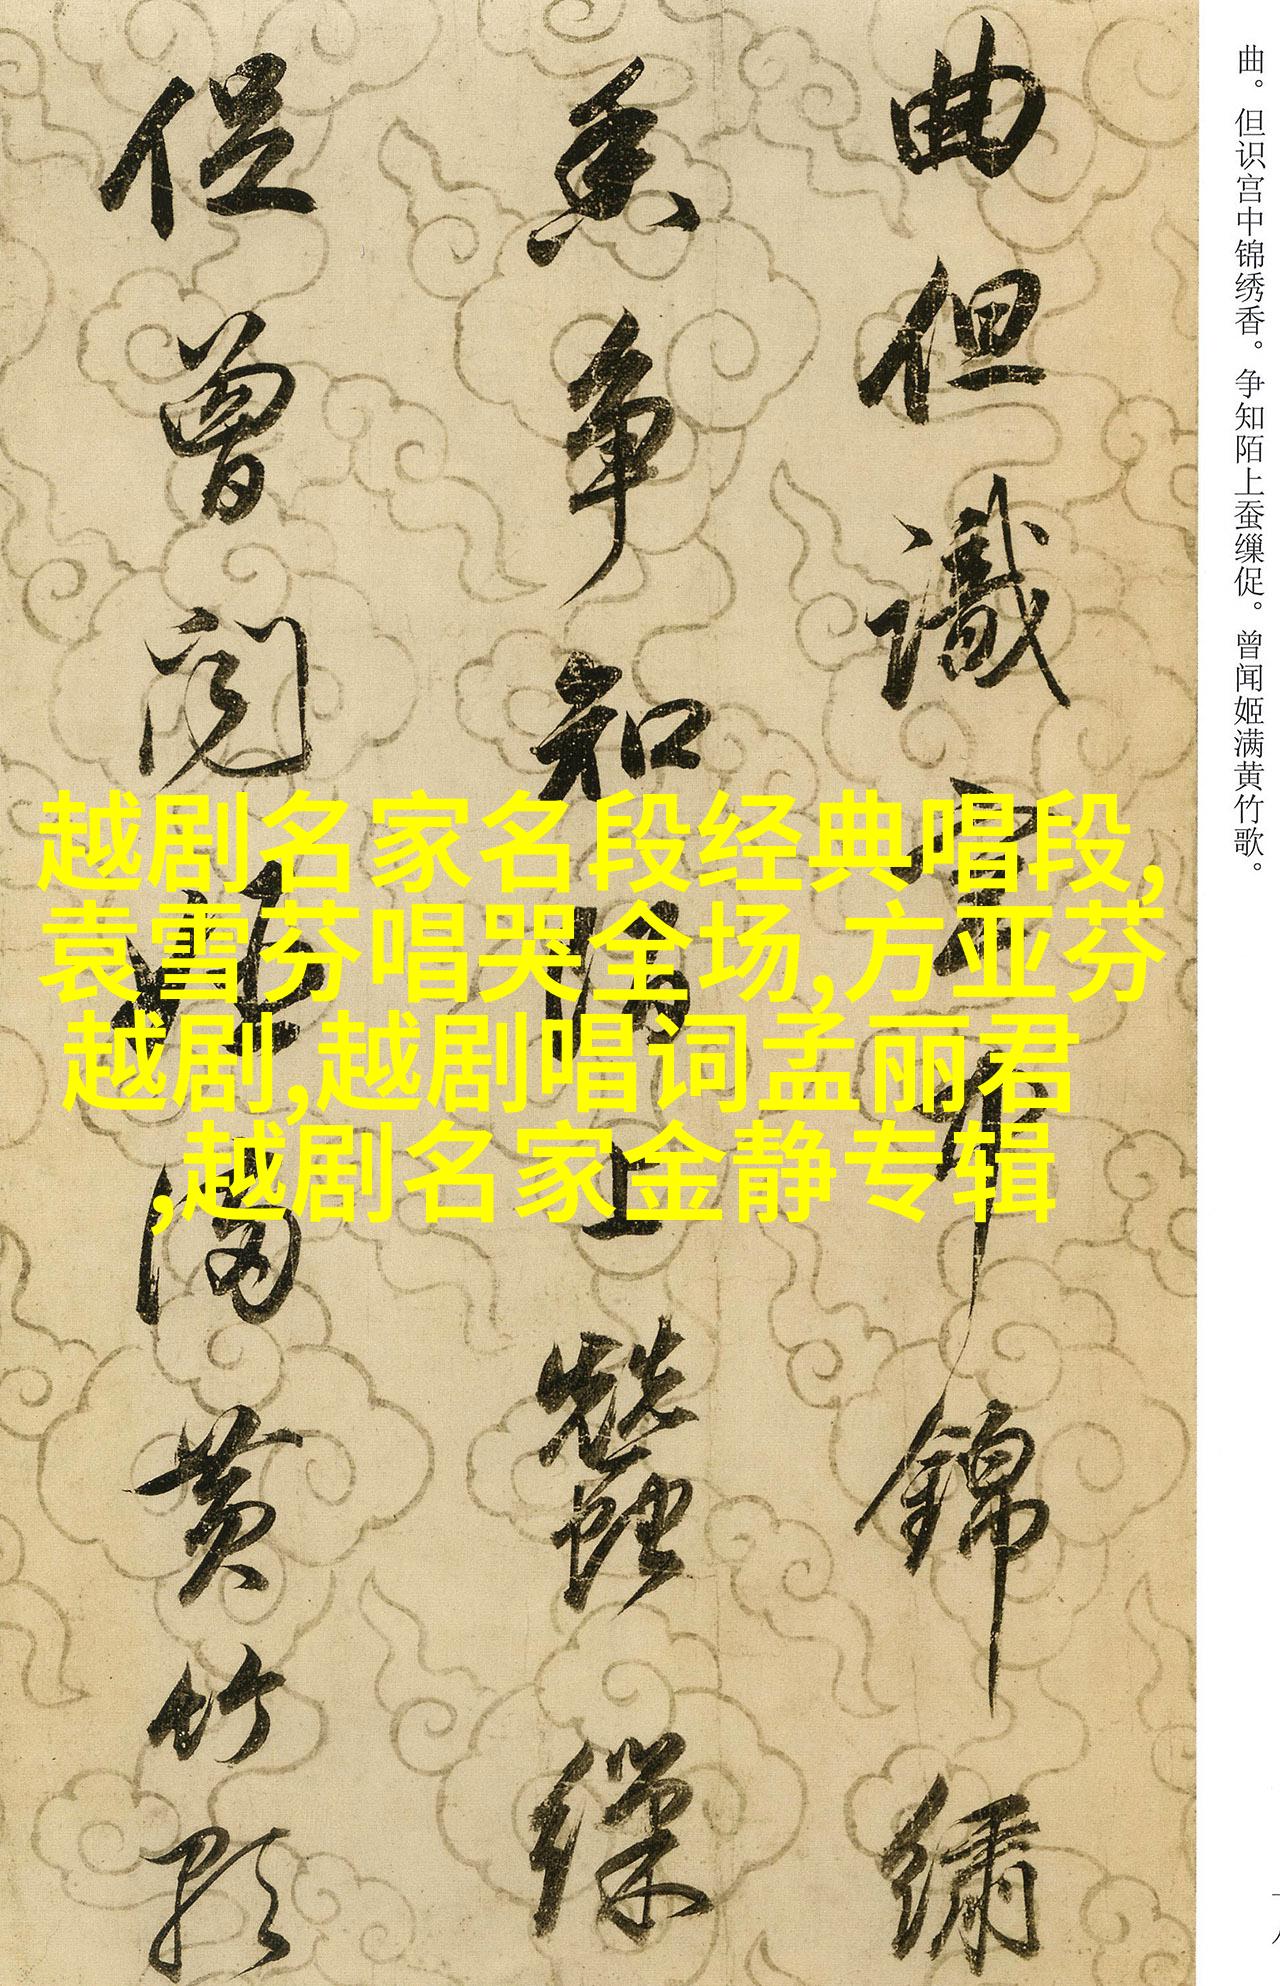 曲。但识宫中锦绣香。争知陌上蚕缫促。曾闻姬满黄竹歌。
曲但識宮中錦繡
香争知陌上蠶繅
促曾闻姬满黄竹歌
越剧名家名段经典唱段,
袁雪芬唱哭全场,方亚芬
越剧,越剧唱词孟丽君
,越剧名家金静专辑